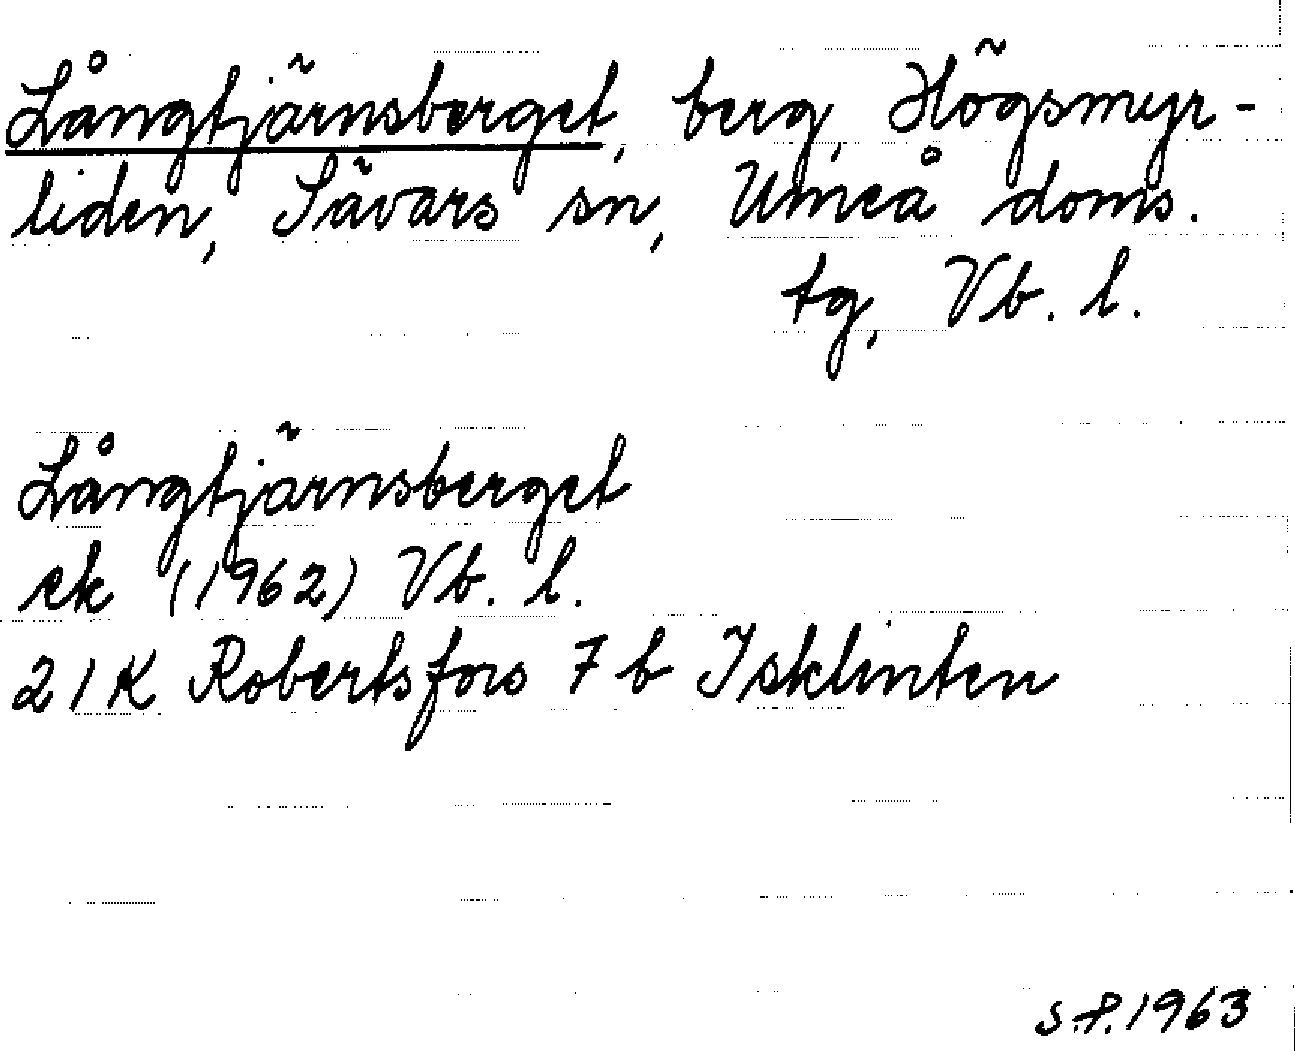 Långtjärnsberget, berg, Högsmyr-
liden, Sävars sn, Umeå doms.
tg, Vb. l.
Långtjärnsberget
ek (1962) Vb. l.
21K Robertsfors 7 b Isklinten
S.P. 1963